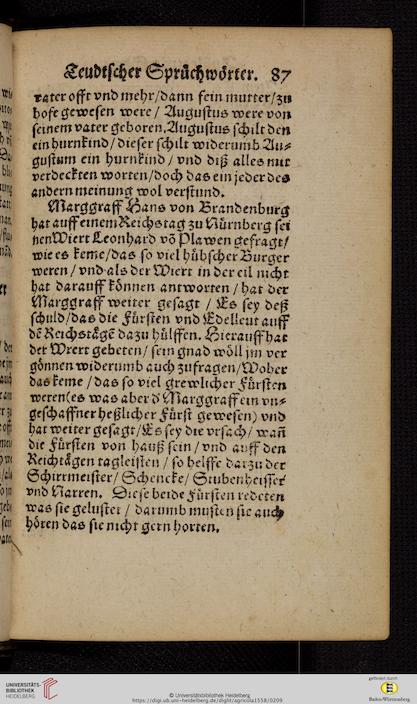 Teudtscher Sprüchwörter. 87
vater offt vnd mehr/dann sein mutter/zu
hofe gewesen were / Augustus were von
seinem vater geboren. Augustus schilt den
ein hurnkind/dieser schilt widerumb Au=
gustum ein hurnkind / vnd diß alles mit
verdeckten worten/doch das ein jeder des
andern meinung wol verstund.
Marggraff Hans von Brandenburg
hat auff einem Reichstag zu Nürnberg sei
nen Wiert Leonhard võ Plawen gefragt/
wie es keme/das so viel hübscher Burger
weren / vnd als der Wiert in der eil nicht
hat darauff können antworten / hat der
Marggraff weiter gesagt / Es sey deß
schuld/das die Fürsten vnd Edelleut auff
dẽ Reichstägẽ dazu hülffen. Hierauff hat
der Wrert gebeten/ sein gnad wöll jm ver
gönnen widerumb auch zufragen/Woher
das keme /das so viel grewlicher Fürsten
weren(es was aber d' Marggraff ein vn=
geschaffner heßlicher Fürst gewesen) vnd
hat weiter gesagt/Es sey die vrsach/ wañ
die Fürsten von hauß sein / vnd auff den
Reichtägen tagleisten / so helffe darzu der
Schirrmeister/ Schencke/ Stubenheisser
vnd Narren. Diese beide Fürsten redeten
was sie gelustet / darumb musten sie auch
hören das sie nicht gern horten.
UNIVERSITÄTS-
BIBLIOTHEK
HEIDELBERG
© Universitätsbibliothek Heidelberg
https://digi.ub.uni-heidelberg.de/diglit/agricola1558/0209
gefördert durch
Baden-Württemberg